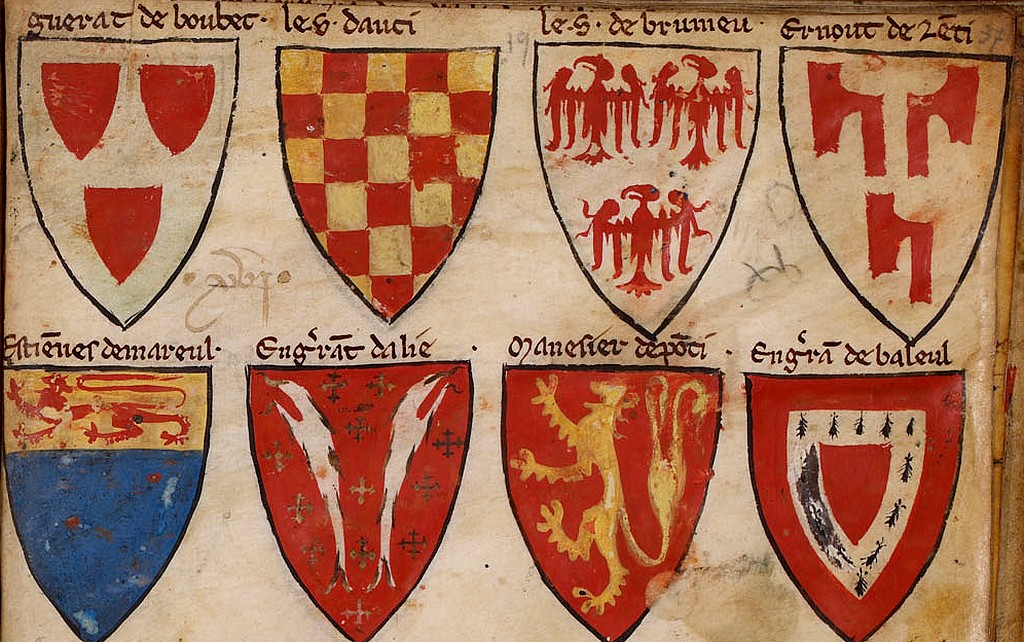 guerat de boubec· le S· dauci le·S· de brumeu· Ernout de Zēti 37
19
Estiēnes demareul· Engʳāt dalie · Manesier depōti · Engʳā de baleul